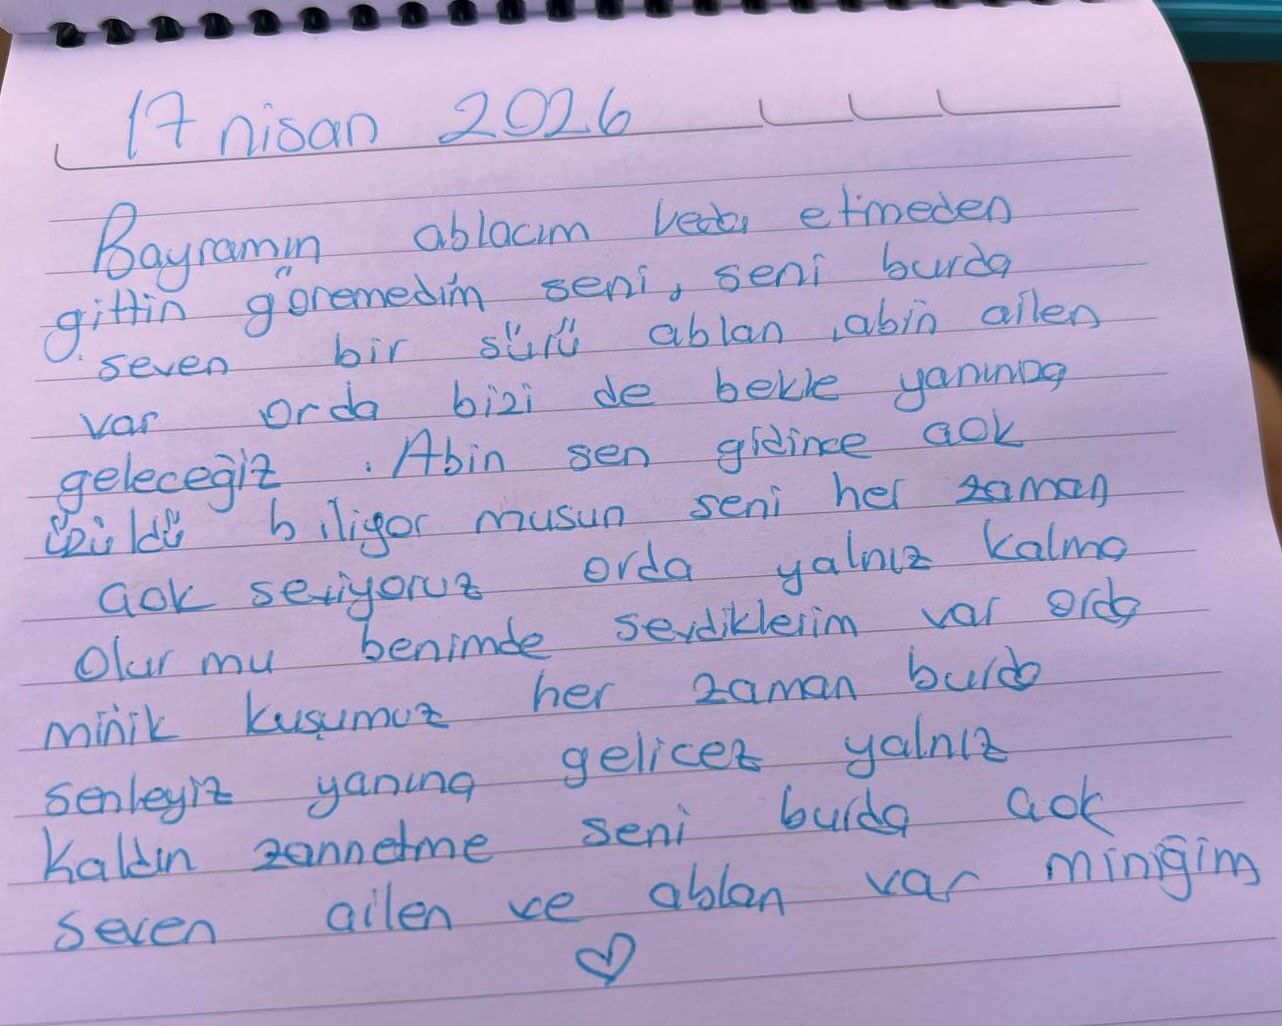 17 nisan 2026
Bayramın ablacım veda etmeden
gittin göremedim seni, seni burda
seven bir sürü ablan , abin ailen
var orda bizi de bekle yanınna
geleceğiz . Abin sen gidince çok
üzüldü biliyor musun seni her zaman
çok seviyoruz orda yalnız kalma
olur mu benimde sevdiklerim var orda
minik kuşumuz her zaman burda
senleyiz yanına gelicez yalnız
kaldın zannetme seni burda çok
seven ailen ve ablan var miniğim